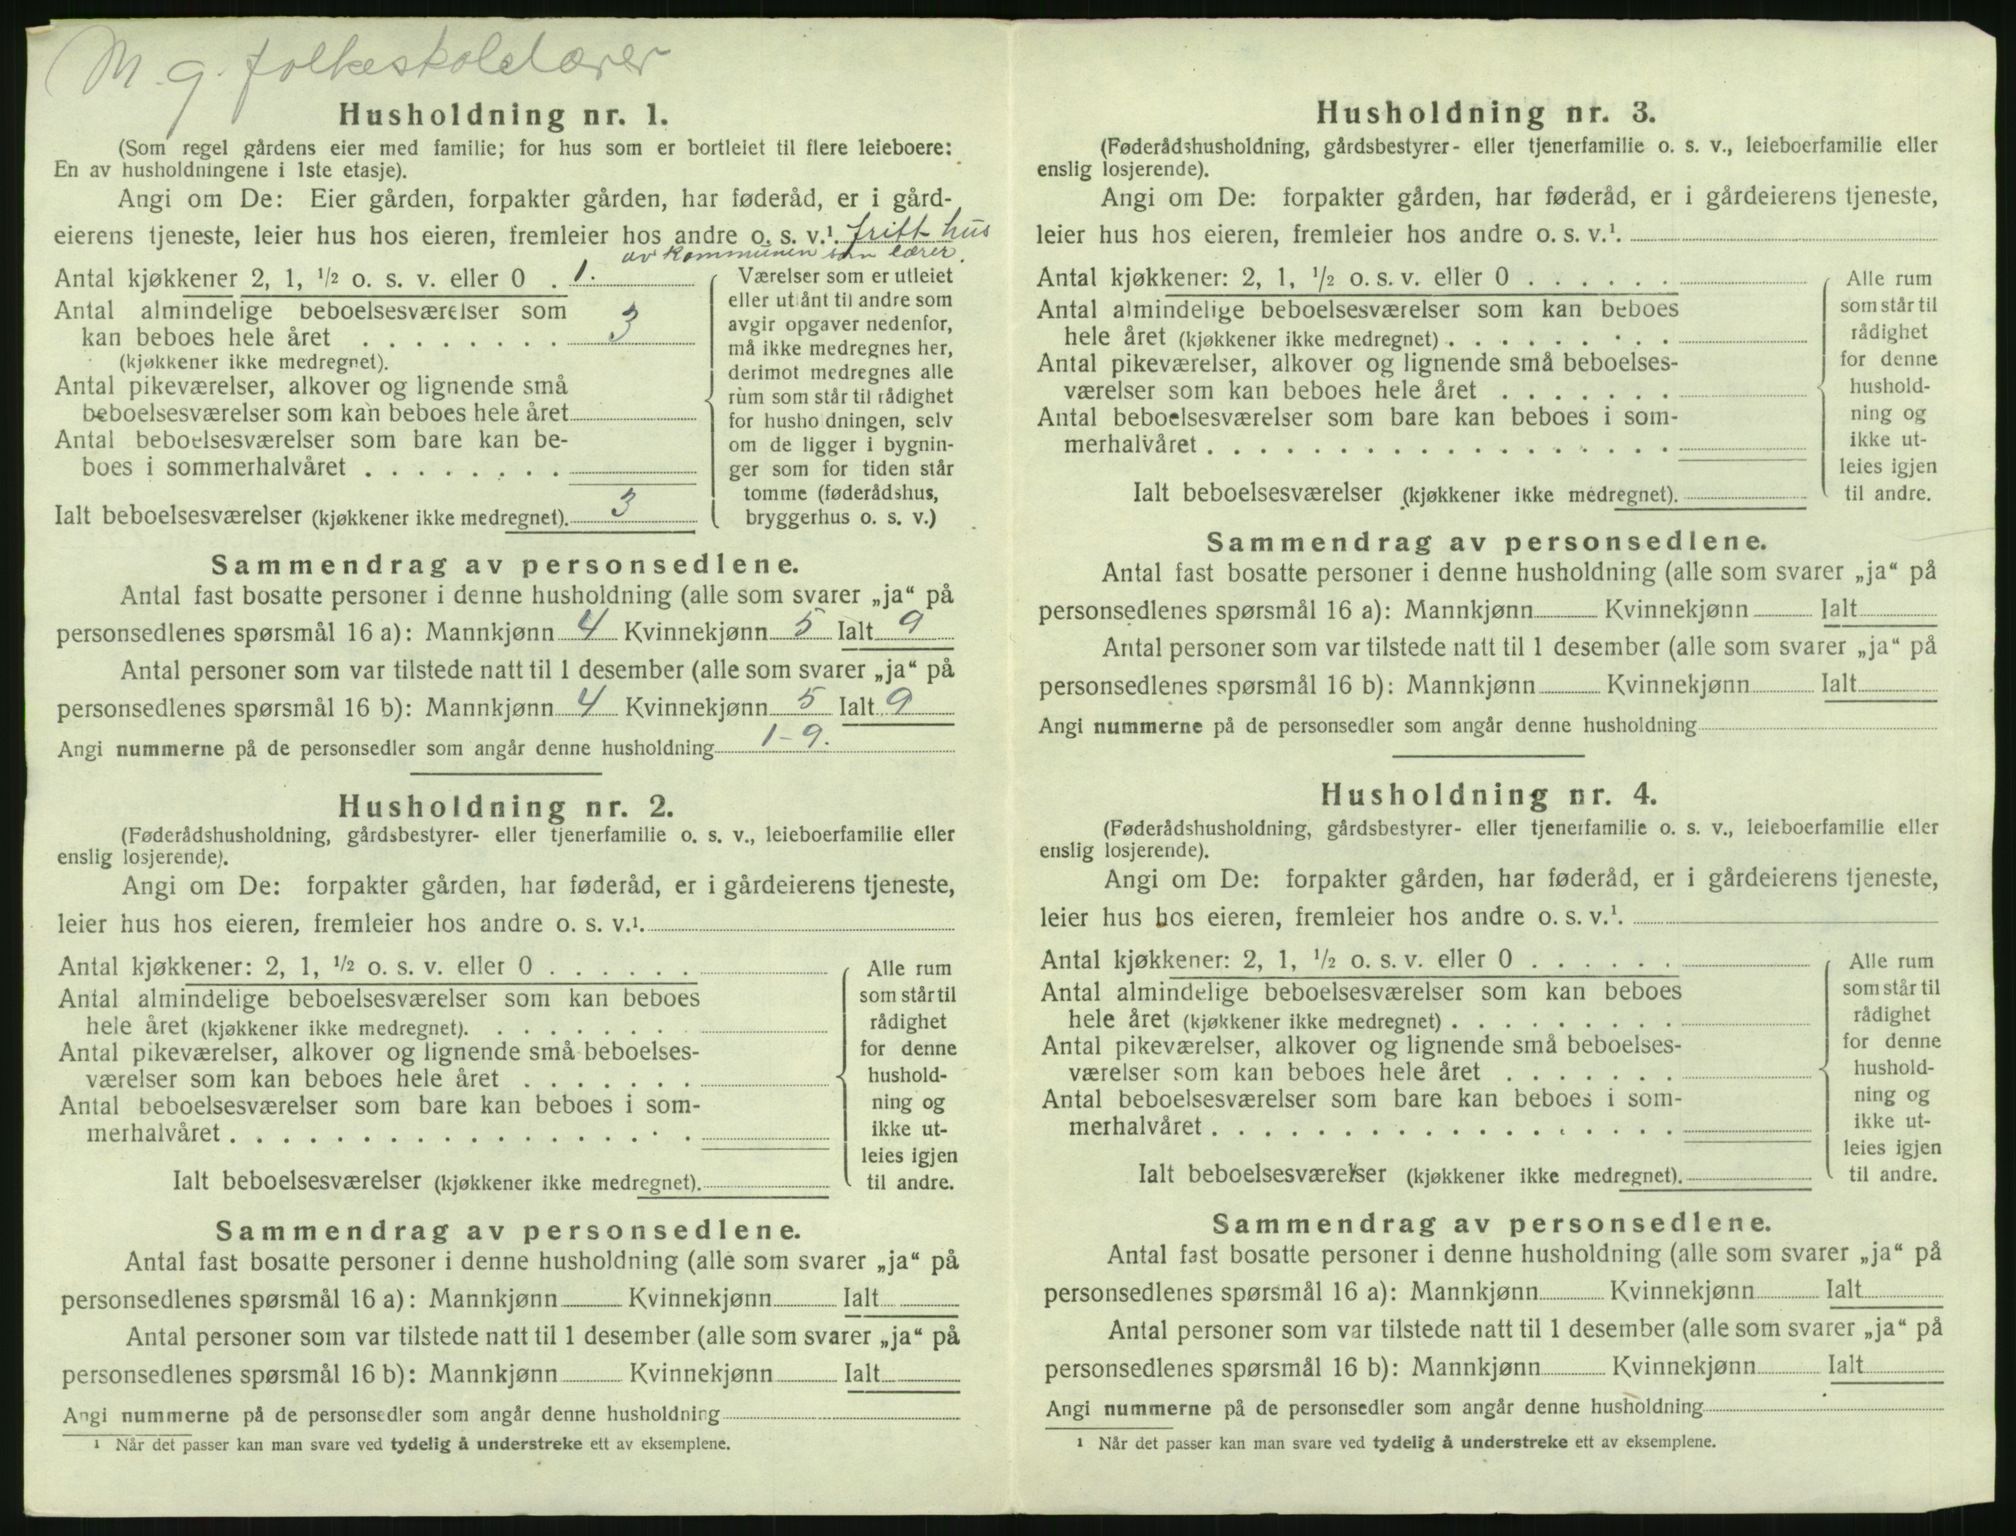 M. g. folkeskolelærer
Husholdning nr. 1.
(Som regel gårdens eier med familie; for hus som er bortleiet til flere leieboere:
En av husholdningene i 1ste etasje).
Angi om De: Eier gården, forpakter gården, har føderåd, er i gård-
eierens tjeneste, leier hus hos eieren, fremleier hos andre o. s. v.¹ fritt hus
av kommunen som lærer.
Antal kjøkkener 2, 1, ½ o. s. v. eller 0 . 1.
Antal almindelige beboelsesværelser som
kan beboes hele året . . . . . . . . 3
(kjøkkener ikke medregnet).
Antal pikeværelser, alkover og lignende små
beboelsesværelser som kan beboes hele året
Antal beboelsesværelser som bare kan be-
boes i sommerhalvåret . . . . . . . .
Ialt beboelsesværelser (kjøkkener ikke medregnet). 3
Værelser som er utleiet
eller utlånt til andre som
avgir opgaver nedenfor,
må ikke medregnes her,
derimot medregnes alle
rum som står til rådighet
for husholdningen, selv
om de ligger i bygnin-
ger som for tiden står
tomme (føderådshus,
bryggerhus o. s. v.)
Sammendrag av personsedlene.
Antal fast bosatte personer i denne husholdning (alle som svarer „ja“ på
personsedlenes spørsmål 16 a): Mannkjønn 4 Kvinnekjønn 5 Ialt 9
Antal personer som var tilstede natt til 1 desember (alle som svarer „ja“ på
personsedlenes spørsmål 16 b): Mannkjønn 4 Kvinnekjønn 5 Ialt 9
Angi nummerne på de personsedler som angår denne husholdning 1-9.
Husholdning nr. 2.
(Føderådshusholdning, gårdsbestyrer- eller tjenerfamilie o. s. v., leieboerfamilie eller
enslig losjerende).
Angi om De: forpakter gården, har føderåd, er i gårdeierens tjeneste,
leier hus hos eieren, fremleier hos andre o. s. v.¹.
Antal kjøkkener: 2, 1, ½ o. s. v. eller 0 . . . . . .
Antal almindelige beboelsesværelser som kan beboes
hele året (kjøkkener ikke medregnet). . . . . . . .
Antal pikeværelser, alkover og lignende små beboelses-
værelser som kan beboes hele året . . . . . . .
Antal beboelsesværelser som bare kan beboes i som-
merhalvåret . . . . . . . . . . . . . . . . . .
Ialt beboelsesværelser (kjøkkener ikke medregnet).
Alle rum
som står til
rådighet
for denne
hushold-
ning og
ikke ut-
leies igjen
til andre.
Sammendrag av personsedlene.
Antal fast bosatte personer i denne husholdning (alle som svarer „ja“ på
personsedlenes spørsmål 16 a): Mannkjønn Kvinnekjønn Ialt
Antal personer som var tilstede natt til 1 desember (alle som svarer „ja“ på
personsedlenes spørsmål 16 b): Mannkjønn Kvinnekjønn Ialt
Angi nummerne på de personsedler som angår denne husholdning
¹ Når det passer kan man svare ved tydelig å understreke ett av eksemplene.
Husholdning nr. 3.
(Føderådshusholdning, gårdsbestyrer- eller tjenerfamilie o. s. v., leieboerfamilie eller
enslig losjerende).
Angi om De: forpakter gården, har føderåd, er i gårdeierens tjeneste,
leier hus hos eieren, fremleier hos andre o. s. v.¹.
Antal kjøkkener: 2, 1, ½ o. s. v. eller 0 . . . . . .
Antal almindelige beboelsesværelser som kan beboes
hele året (kjøkkener ikke medregnet) . . . . . . . .
Antal pikeværelser, alkover og lignende små beboelses-
værelser som kan beboes hele året . . . . . . .
Antal beboelsesværelser som bare kan beboes i som-
merhalvåret . . . . . . . . . . . . . . . . . .
Ialt beboelsesværelser (kjøkkener ikke medregnet).
Alle rum
som står til
rådighet
for denne
hushold-
ning og
ikke ut-
leies igjen
til andre.
Sammendrag av personsedlene.
Antal fast bosatte personer i denne husholdning (alle som svarer „ja“ på
personsedlenes spørsmål 16 a): Mannkjønn Kvinnekjønn Ialt
Antal personer som var tilstede natt til 1 desember (alle som svarer „ja“ på
personsedlenes spørsmål 16 b): Mannkjønn Kvinnekjønn Ialt
Angi nummerne på de personsedler som angår denne husholdning
Husholdning nr. 4.
(Føderådshusholdning, gårdsbestyrer- eller tjenerfamilie o. s. v., leieboerfamilie eller
enslig losjerende).
Angi om De: forpakter gården, har føderåd, er i gårdeierens tjeneste,
leier hus hos eieren, fremleier hos andre o. s. v.¹.
Antal kjøkkener: 2, 1, ½ o. s. v. eller 0 . . . . . .
Antal almindelige beboelsesværelser som kan beboes
hele året (kjøkkener ikke medregnet) . . . . . . . .
Antal pikeværelser, alkover og lignende små beboelses-
værelser som kan beboes hele året . . . . . . .
Antal beboelsesværelser som bare kan beboes i som-
merhalvåret . . . . . . . . . . . . . . . . . .
Ialt beboelsesværelser (kjøkkener ikke medregnet).
Alle rum
som står til
rådighet
for denne
hushold-
ning og
ikke ut-
leies igjen
til andre.
Sammendrag av personsedlene.
Antal fast bosatte personer i denne husholdning (alle som svarer „ja“ på
personsedlenes spørsmål 16 a): Mannkjønn Kvinnekjønn Ialt
Antal personer som var tilstede natt til 1 desember (alle som svarer „ja“ på
personsedlenes spørsmål 16 b): Mannkjønn Kvinnekjønn Ialt
Angi nummerne på de personsedler som angår denne husholdning
¹ Når det passer kan man svare ved tydelig å understreke ett av eksemplene.